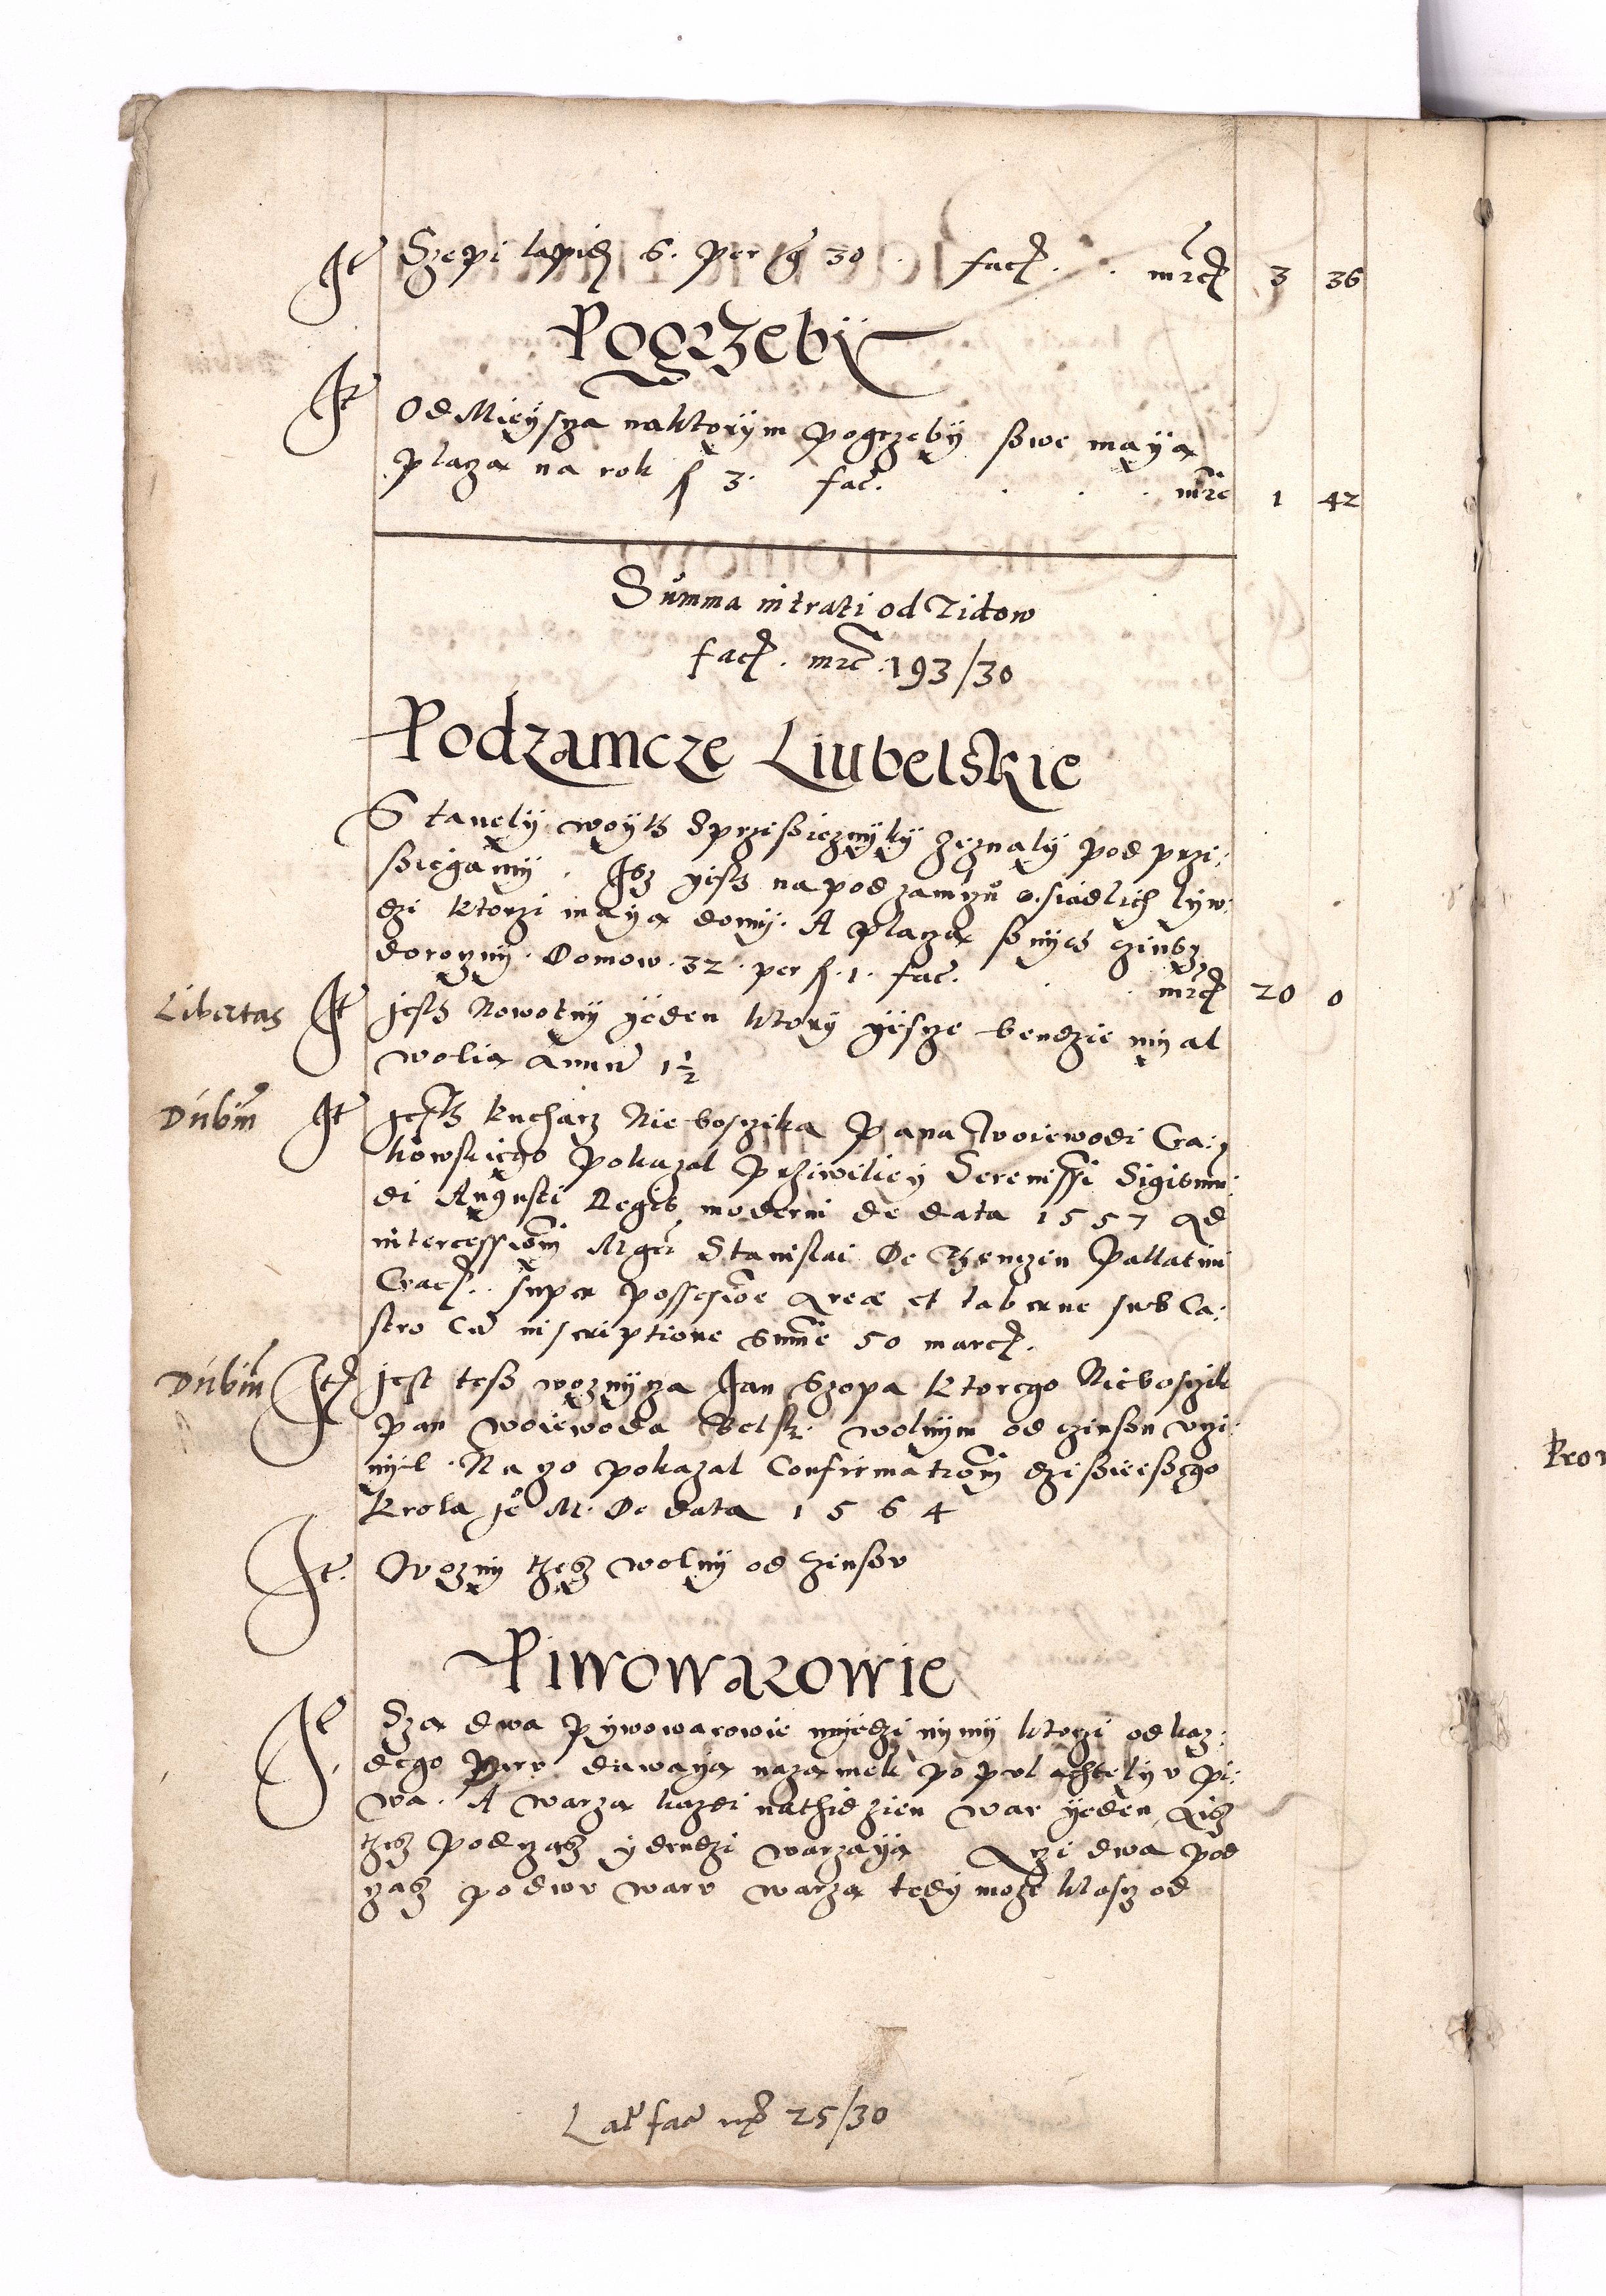 It Szepi lapid 6. per g 30. fac. mrc 3 36
Pogrzebÿ
It Od Mieÿscza naktorÿm pogrzebÿ swe maÿa
placza na rok f 3. fac. mrc 1 42
Summa intrati od Zidow
fac. mrc. 193/30
Podzamcze Liubelskie
Stanely woÿth Sprzisiezniky zeznalÿ pod przi:
siegamÿ. Isz jesth napodzamczu osiadlich lÿw:
dzi ktorzi maÿa domÿ. A placza snÿch czinsz
dorocznÿ. Domow. 32. per f. 1. fac. mrc 20 0
Libertas It jesth Nowotnÿ ÿeden ktorÿ ÿescze bendzie mÿal
wolia Annu 1½
Dubiu It jesth kucharz Nieboszika Pana woiewodi Cra:
kowskiego pokazal Prziwilieÿ Serenissi Sigismu:
di Augusti Regis moderni de data 1557 Ad
intercessiom Mgci Stanislai De Thenczin Pallatini
Crac. super possesione Areæ et taberne sub Ca:
stro Cu inscriptione Sume 50 marc.
Dubiu It jest tess woznÿcza Jan Szopa ktorego Nieboszik
pan woiewoda Belsk. wolnÿm od czinsou uczi:
nÿl. Na czo pokazal Confirmatiom dzisieisego
krola je M. De data 1564
It. Woznÿ thesz wolnÿ od czinsv
Piwowarowie
It. Sza dwa pÿwowarowie mÿedzi nÿmÿ ktorzi od kaz:
dego warv dawaÿa nazamek po pul achtelÿv pi:
wa. A warza kazdi nathidzien war ÿeden, Aisz
thesz podczasz ÿ drudzi warzaÿa Aczi dwa pod
czasz podwv warv warza tedÿ moze klasz od
Lat fac mr 25/30